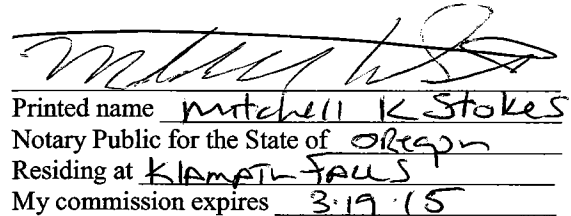 Printed name Mitchell K Stokes
Notary Public for the State of Oregon
Residing at Klamath Falls
My commission expires 3.19.15